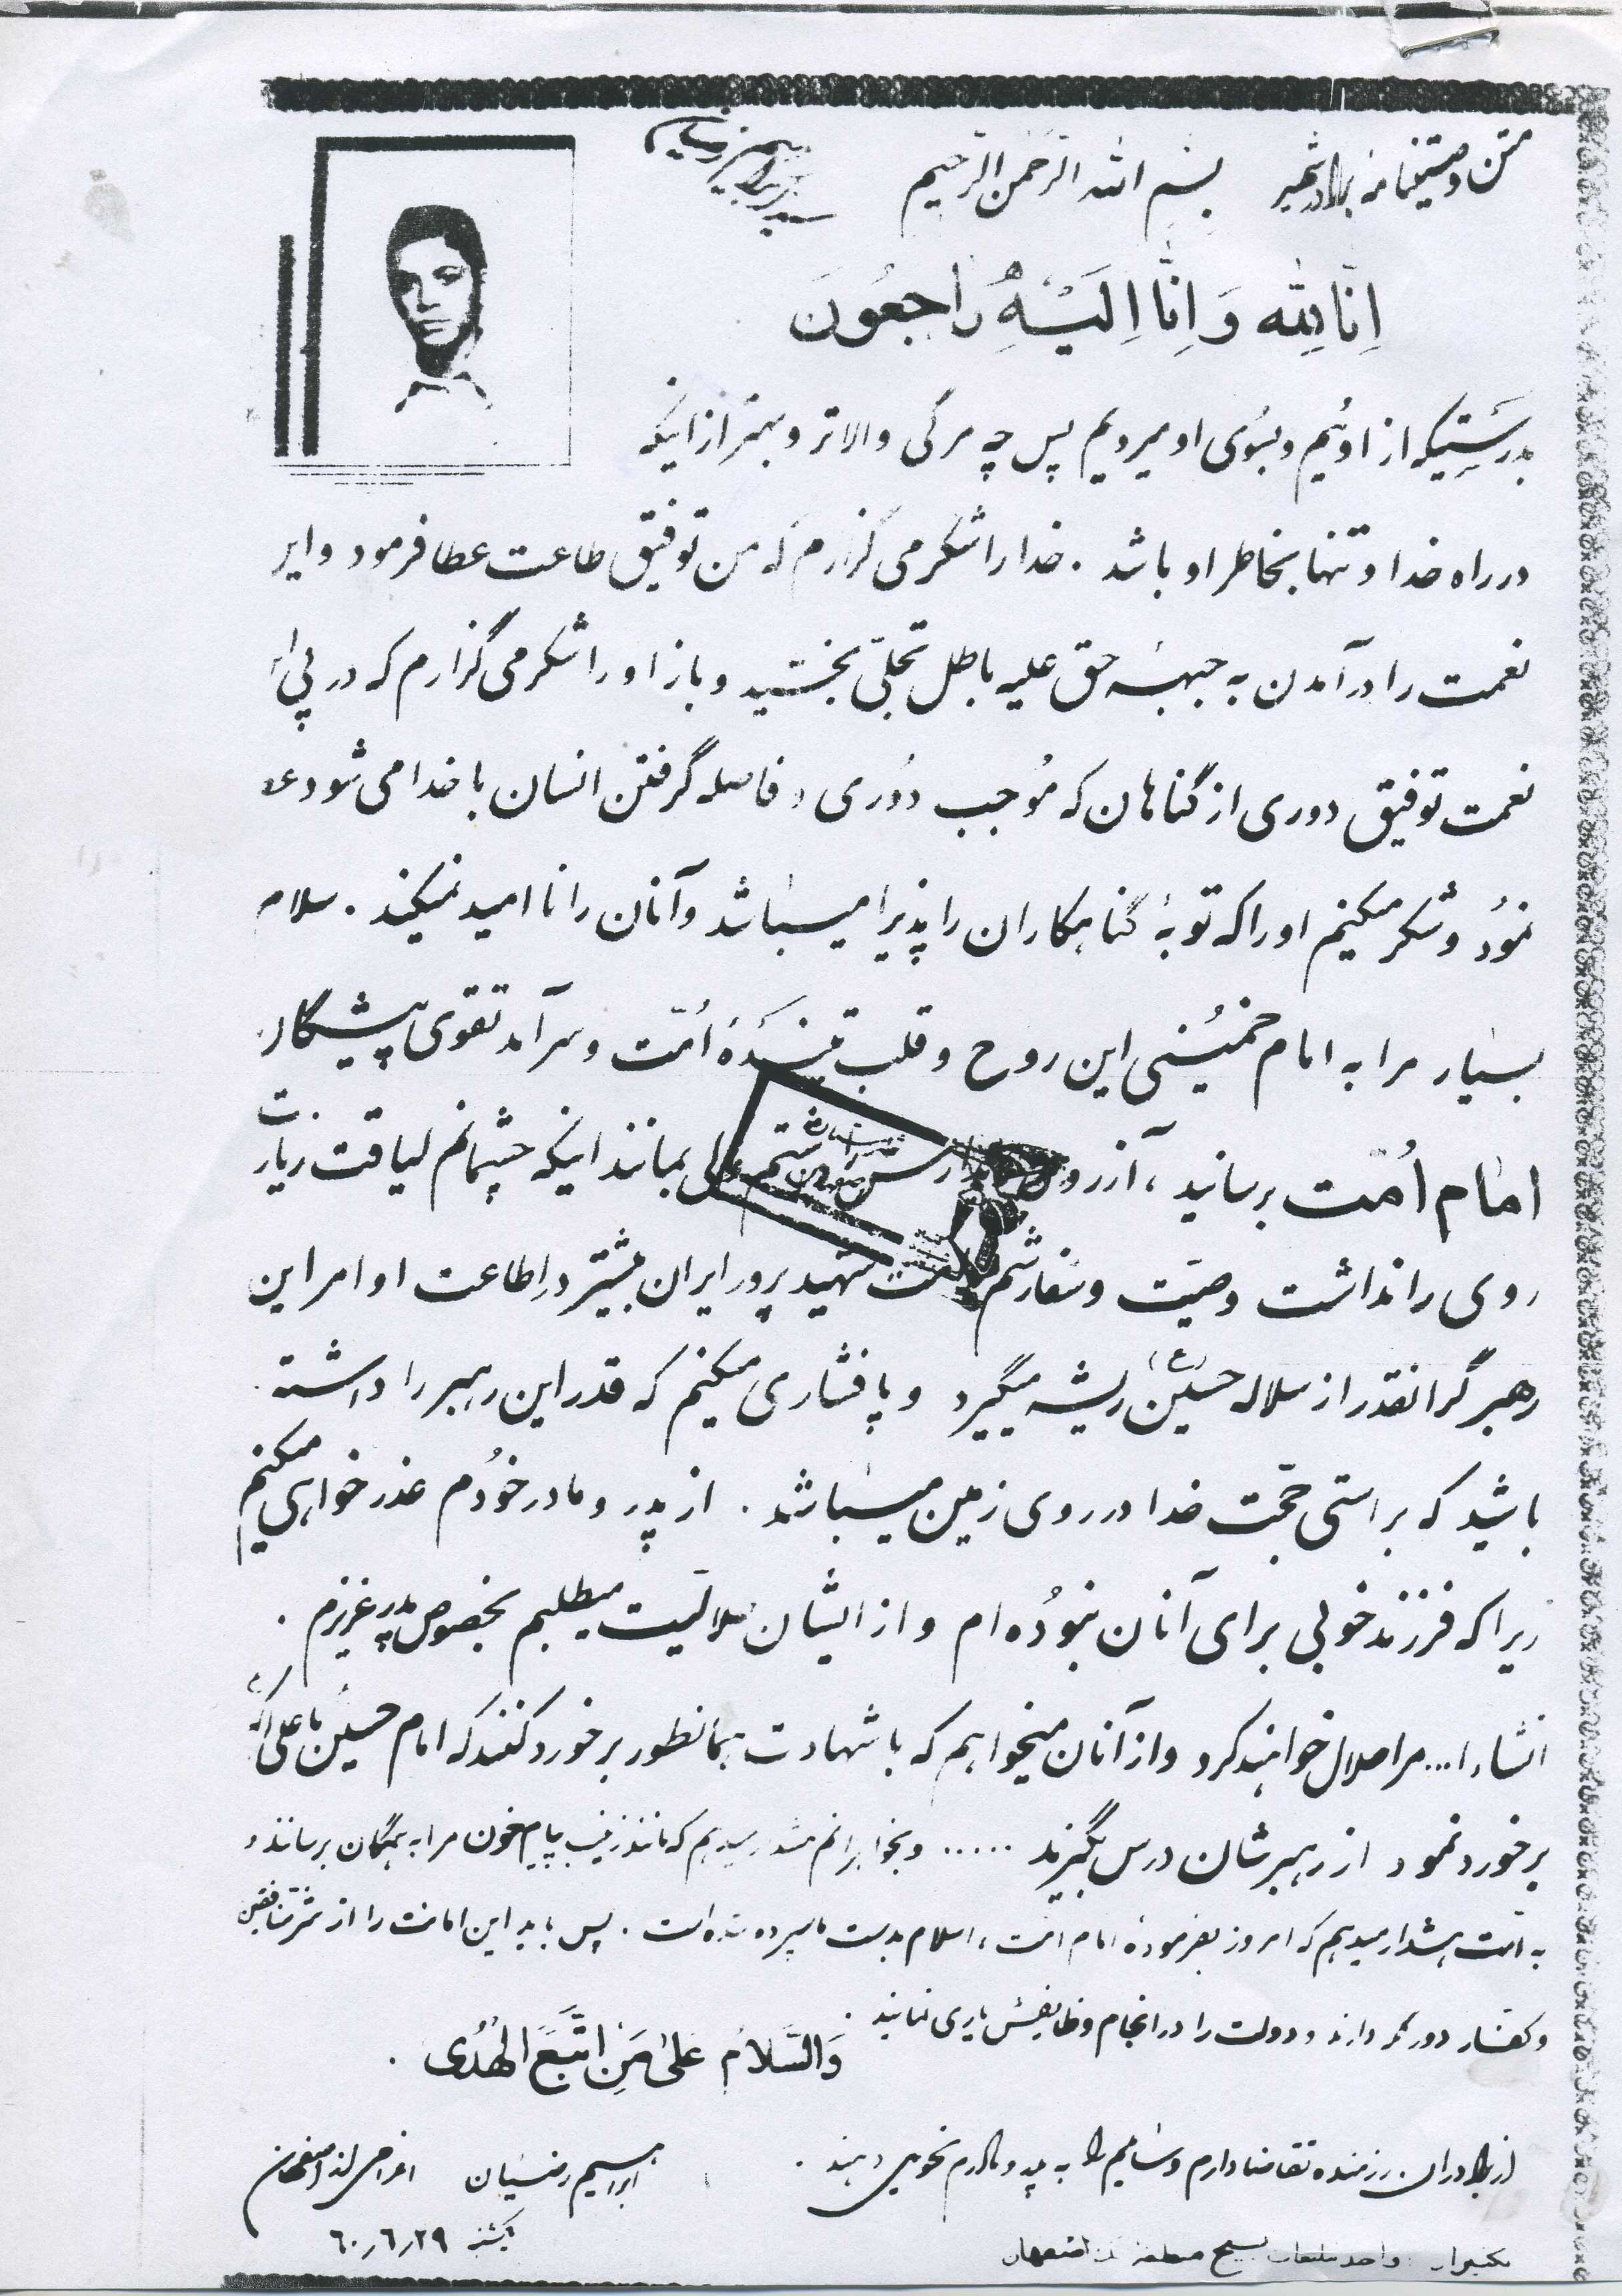 متن وصیتنامه برادر شهید بسم الله الرحمن الرحیم
اِنّا لِلّه وَ اِنّا اِلَیْهِ رَاجِعُونَ
بدرستیکه از اوئیم و بسوی او میرویم پس چه مرگی والاتر و بهتر از اینکه
در راه خدا و تنها بخاطر او باشد . خدا را شکر می گزارم که من توفیق طاعت عطا فرمود و این
نعمت را در آمدن به جبهه حق علیه باطل تجلّی بخشید و باز او را شکر می گزارم که در پی
نعمت توفیق دوری از گناهان که مُوجب دوری و فاصله گرفتن انسان با خدا می شود
نمُود و شکر میکنم او را که توبۀ گناهکاران را پذیرا میباشد و آنان را ناامید نمیکند . سلام
بسیار مرا به امام خمینی این روح و قلب تپندۀ اُمّت و سرآمد تقوی پیشگان
امام اُمّت برسانید ، آرزوی بمانند اینکه چشمانم لیاقت زیارت
روی را نداشت وصیّت و سفارشم شهید پرور ایران بیشتر در اطاعت اوامر این
رهبر گرانقدر از سلاله حسین (ع) ریشه میگیرد و پافشاری میکنم که قدر این رهبر را داشته
باشید که براستی حجّت خدا در روی زمین میباشد . از پدر و مادر خودم عذرخواهی میکنم
زیرا که فرزند خوبی برای آنان نبوده ام و از ایشان حلالیّت میطلبم بخصوص پدر عزیزم .
انشاءا... مرا حلال خواهند کرد و از آنان میخواهم که با شهادت همانطور برخورد کنند که امام حسین با علی اکبر
برخورد نمود از رهبرشان درس بگیرند ..... و بخواهرانم میدهم که مانند زینب پیام خون مرا به همگان برسانند و
به امّت هشدار میدهم که امروز بفرمودۀ امام امّت ، اسلام بدست ما سپرده شده است . پس باید این امانت را از شر منافقین
و کفار دور نگه دارند و دولت را در انجام وظایفش یاری نمایند .
وَالسَّلامُ عَلیٰ مَنِ اتَّبَعَ الهُدیٰ .
از برادران رزمنده تقاضا دارم وسایلم را به پدر و مادرم تحویل دهند .
ابراهیم رضائیان اعزامی از اصفهان
یکشنبه ۶۰/۶/۲۹
تکثیر از : واحد تبلیغات بسیج منطقه اصفهان